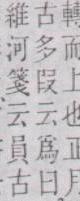 轉而上也正月
古多叚云爲曰
維河箋云員古